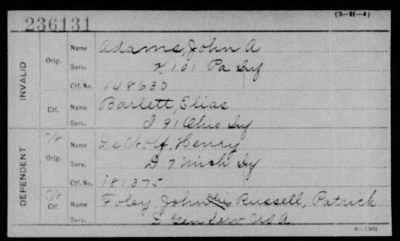 236131 (3-H-4)
INVALID
Orig.
Name Adams, John A
Serv. K 101 Pa Inf
Ctf. No. 148630
Ctf.
Name Barlett, Elias
Serv. I 91 Ohio Inf
DEPENDENT
Orig.
Name DeWolf, Henry
Serv. D 7 Mich Inf
Ctf. No. 181375
Ctf.
Name Foley, John alias Russell, Patrick
Serv. U S A